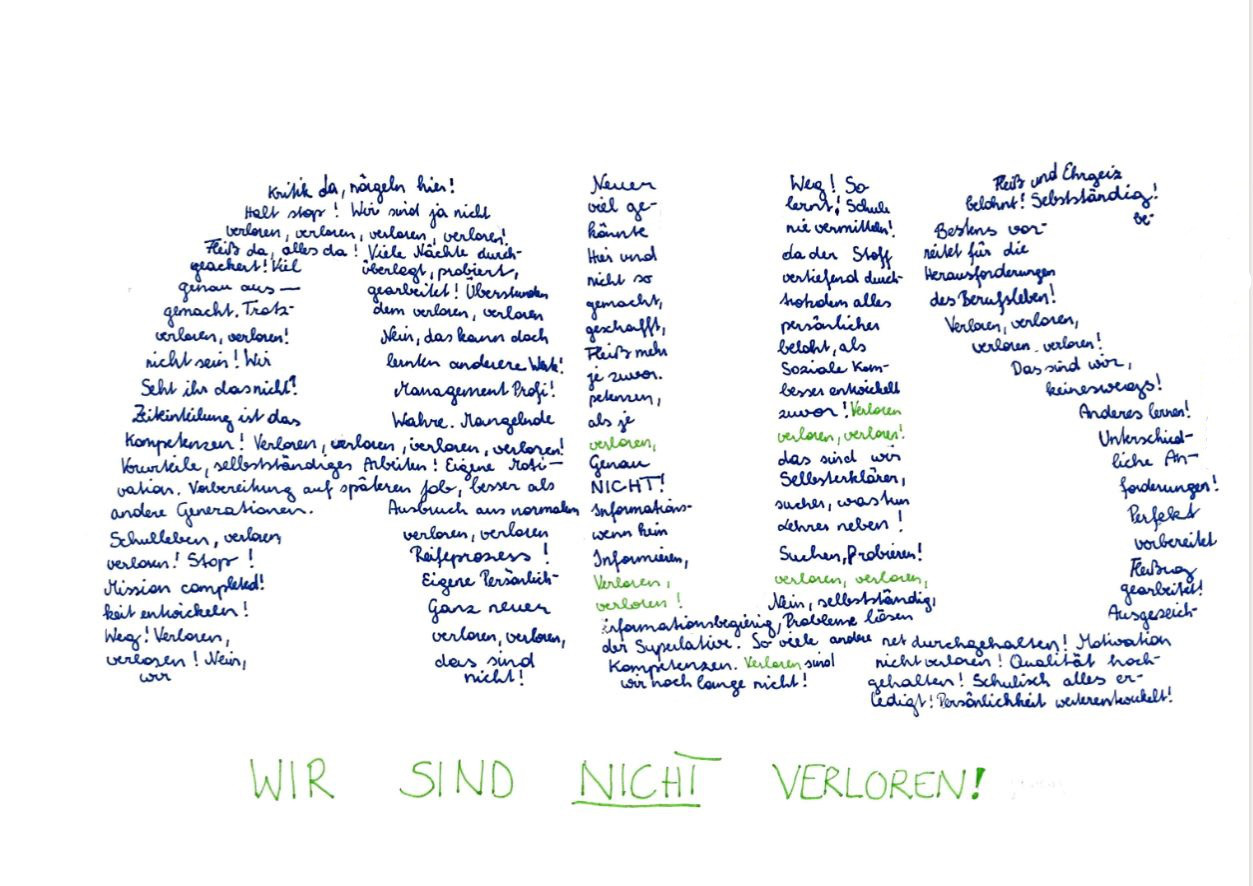 Kritik da, nörgeln hier!
Halt stop! Wir sind ja nicht
verloren, verloren, verloren, verloren!
Fleiß da, alles da! Viele Nächte durch-
geackert! Viel überlegt, probiert,
genau aus— gearbeitet! Überstunden
gemacht. Trotz- dem verloren, verloren
verloren, verloren! Nein, das kann doch
nicht sein! Wir lernten anderere Werk!
Seht ihr das nicht? Management Profi!
Zeiteinteilung ist das Wahre. Mangelnde
Kompetenzen! Verloren, verloren, verloren, verloren!
Vorurteile, selbstständiges Arbeiten! Eigene Moti—
vation. Vorbereitung auf späteren Job, besser als
andere Generationen. Ausbruch aus normalen
Schulleben, verloren, verloren, verloren
verloren! Stop! Reifeprozess!
Mission completed! Eigene Persönlich-
keit entwickeln! Ganz neuer
Weg! Verloren, verloren, verloren,
verloren! Nein, das sind
wir nicht!
Neuer Weg! So
viel ge- lernt! Schule
könnte nie vermitteln!
Hier und da der Stoff
nicht so vertiefend durch-
gemacht, trotzdem alles
geschafft, persönlicher
Fleiß mehr beloht, als
je zuvor. Soziale Kom-
petenzen, besser entwickelt
als je zuvor! Verloren
verloren, verloren, verloren!
Genau das sind wir
NICHT! Selbsterklären,
Informations- sucher, was tun
wenn kein Lehrer neben!
Informieren, Suchen, Probieren!
Verloren, verloren, verloren,
verloren! Nein, selbstständig,
informationsbegierig, Probleme lösen
der Superlative. So viele andere
Kompetenzen. Verloren sind
wir noch lange nicht!
Fleiß und Ehrgeiz
belohnt! Selbstständig!
Bestens vor- be-
reitet für die
Herausforderungen
des Berufsleben!
Verloren, verloren,
verloren, verloren!
Das sind wir,
keineswegs!
Anderes lernen!
Unterschied-
liche An-
forderungen!
Perfekt
vorbereitet
Fleißig
gearbeitet!
Ausgezeich-
net durchgehalten! Motivation
nicht verloren! Qualität hoch-
gehalten! Schulisch alles er-
ledigt! Persönlichkeit weiterentwickelt!
WIR SIND NICHT VERLOREN!